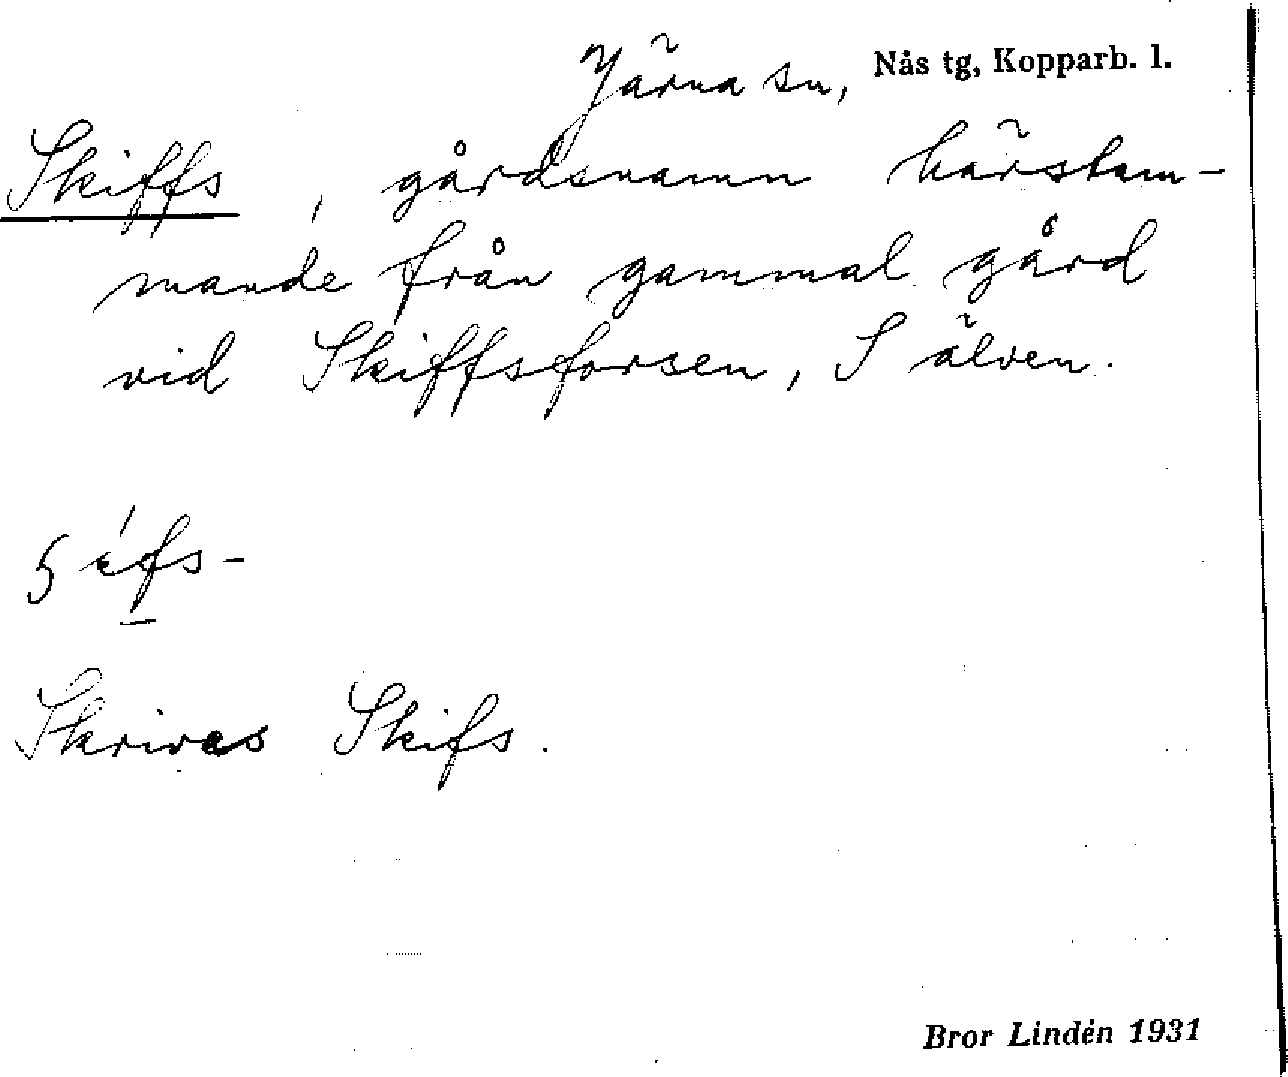 Järna sn, Nås tg, Kopparb. l.
Skiffs, gårdsnamn härstam-
mande från gammal gård
vid Skiffsforsen, S älven.
Skrives Skifs.
Bror Lindén 1931